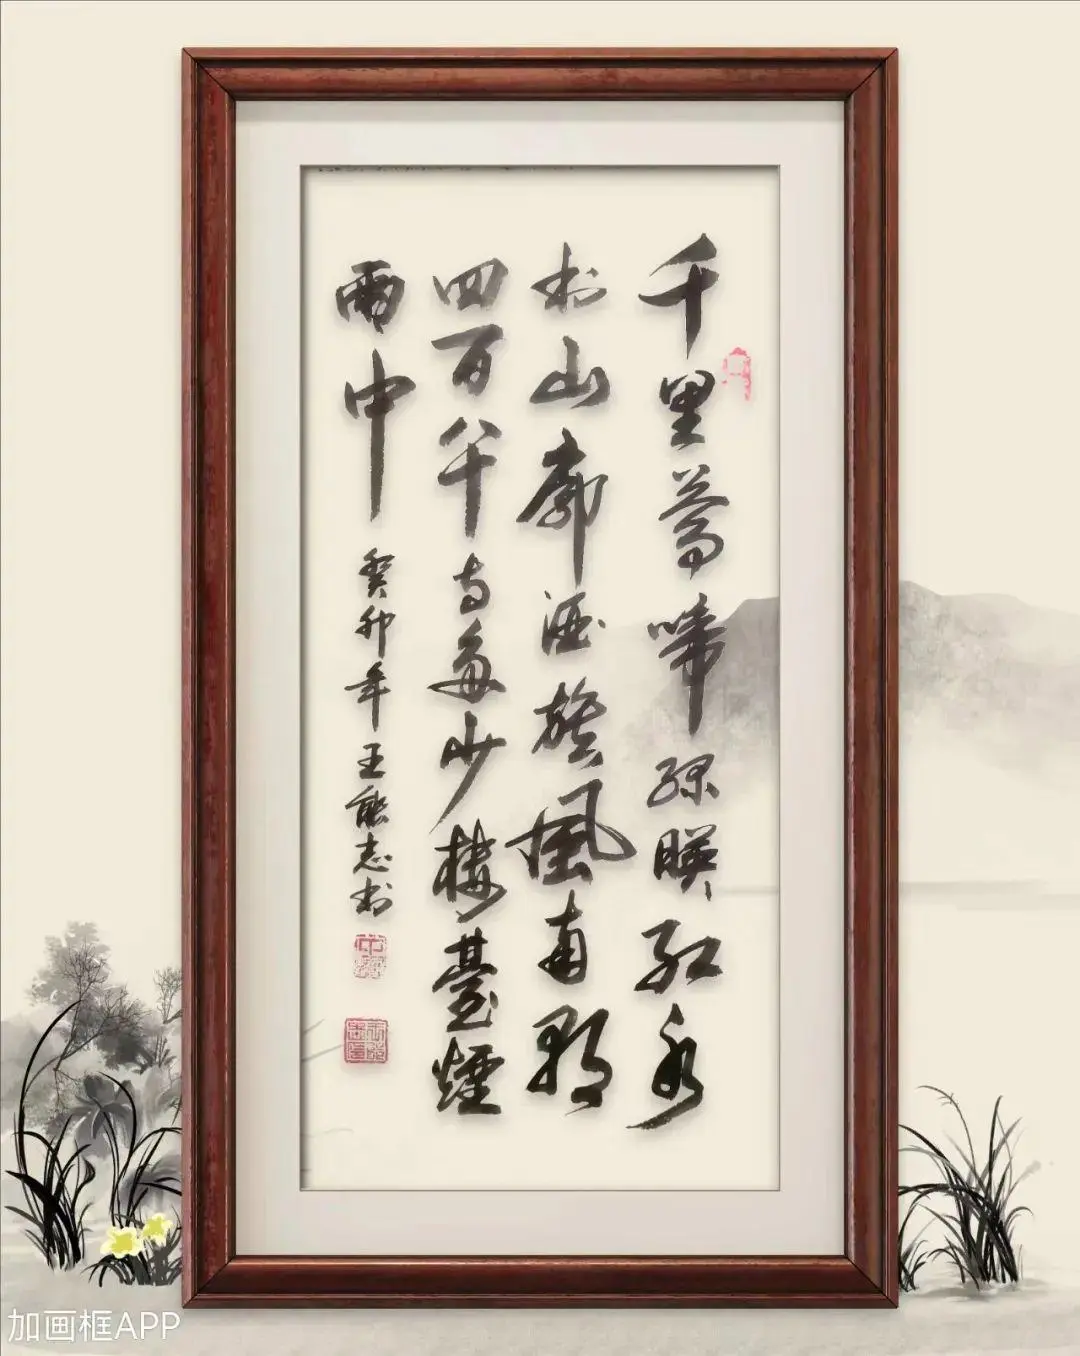 千里莺啼绿暎红水
村山郭酒旗風南朝
四百八十寺多少樓臺煙
雨中
癸卯年王能志书
加画框APP